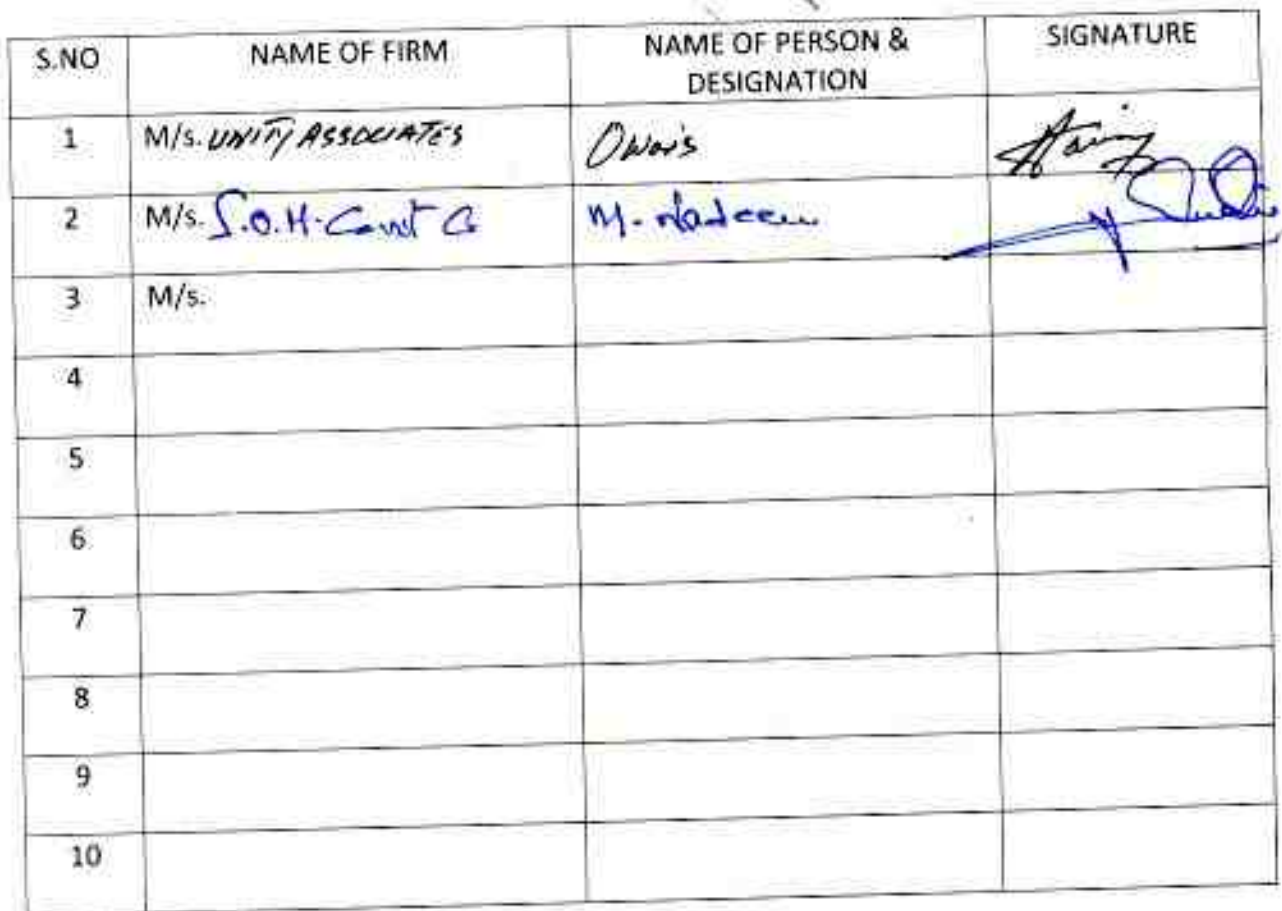 S.NO NAME OF FIRM NAME OF PERSON & SIGNATURE
DESIGNATION
1 M/s. UNITY ASSOCIATES Owais
2 M/s. S.O.H. Const Co M. Nadeem
3 M/s.
4
5
6
7
8
9
10